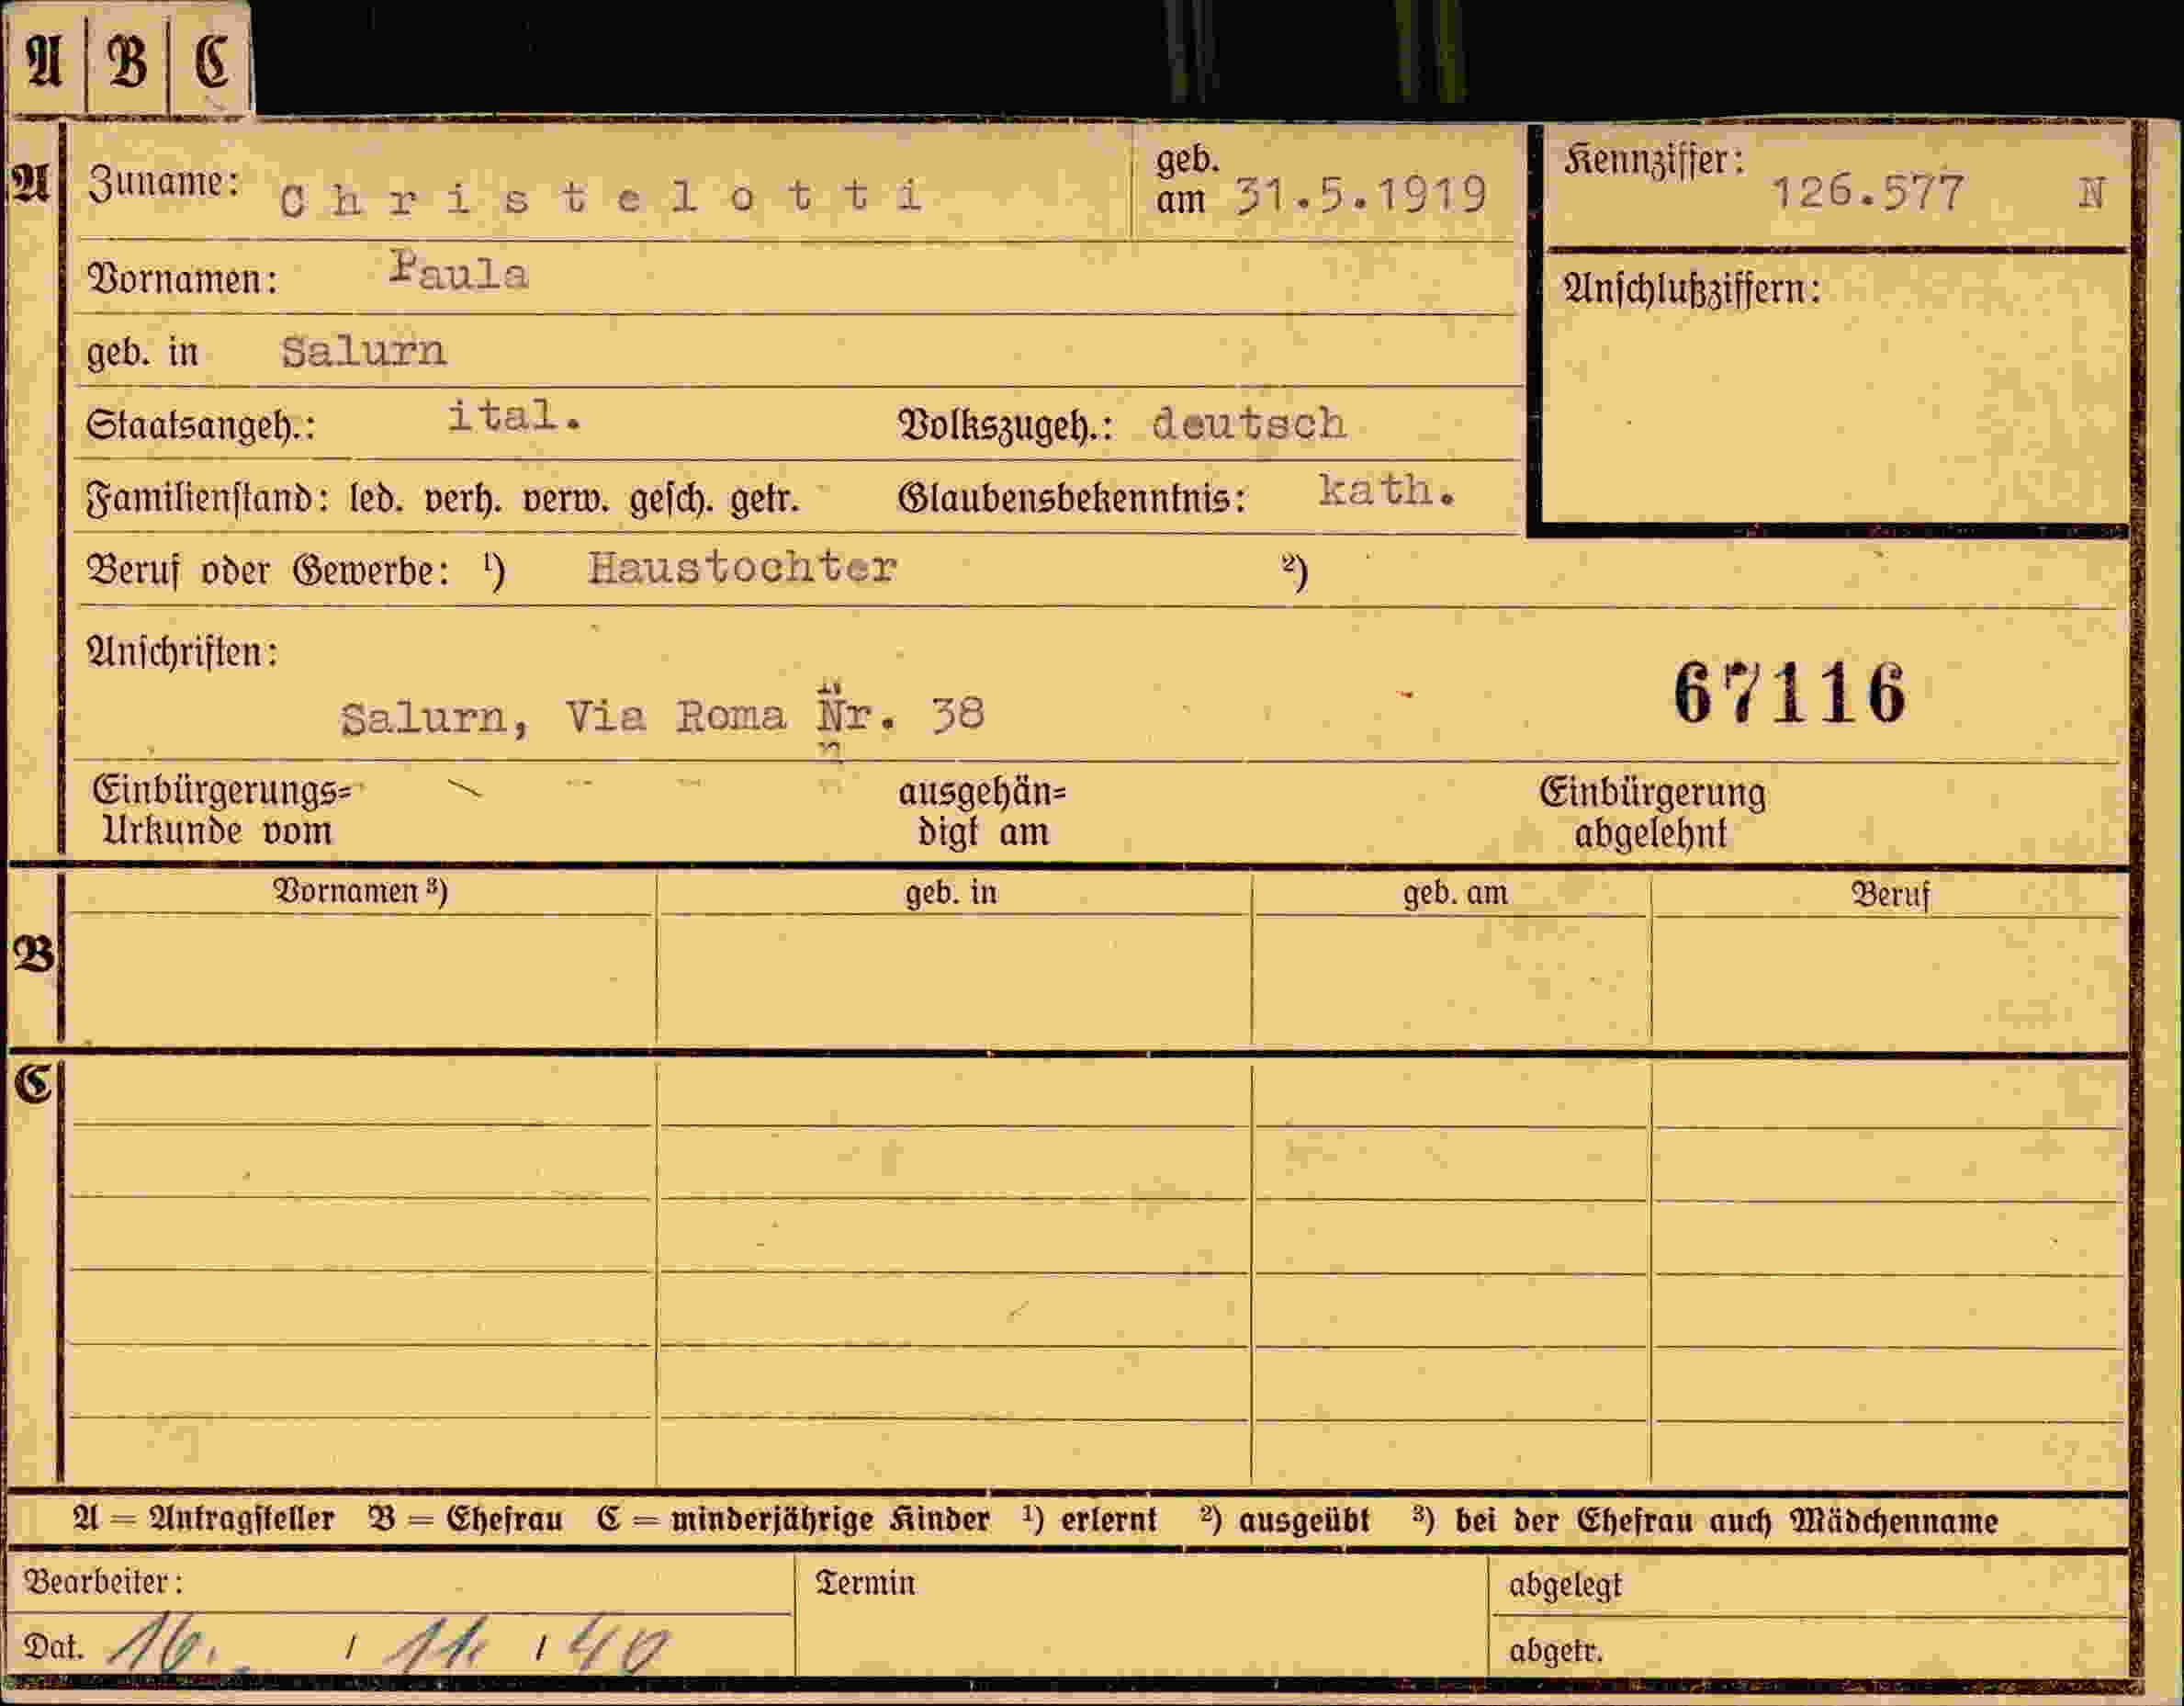 A B C
A Zuname: Christelotti geb. am 31.5.1919 Kennziffer: 126.577 N
Vornamen: Paula Anschlußziffern:
geb. in Salurn
Staatsangeh.: ital. Volkszugeh.: deutsch
Familienstand: led. verh. verw. gesch. getr. Glaubensbekenntnis: kath.
Beruf oder Gewerbe: ¹) Haustochter ²)
Anschriften:
67116
Salurn, Via Roma Nr. 38
Einbürgerungs= ausgehän= Einbürgerung
Urkunde vom digt am abgelehnt
Vornamen ³) geb. in geb. am Beruf
B
C
A = Antragsteller B = Ehefrau C = minderjährige Kinder ¹) erlernt ²) ausgeübt ³) bei der Ehefrau auch Mädchenname
Bearbeiter: Termin abgelegt
Dat. 16. / 11. / 40 abgetr.